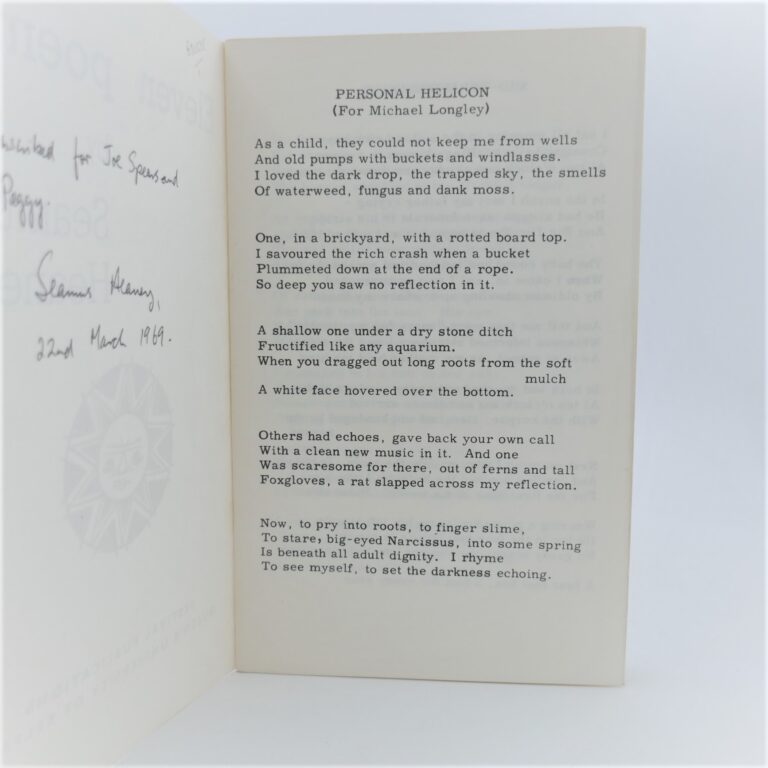 Joe Spears and
Peggy.
Seamus Heaney,
22nd March 1969.
PERSONAL HELICON
(For Michael Longley)
As a child, they could not keep me from wells
And old pumps with buckets and windlasses.
I loved the dark drop, the trapped sky, the smells
Of waterweed, fungus and dank moss.
One, in a brickyard, with a rotted board top.
I savoured the rich crash when a bucket
Plummeted down at the end of a rope.
So deep you saw no reflection in it.
A shallow one under a dry stone ditch
Fructified like any aquarium.
When you dragged out long roots from the soft
mulch
A white face hovered over the bottom.
Others had echoes, gave back your own call
With a clean new music in it. And one
Was scaresome for there, out of ferns and tall
Foxgloves, a rat slapped across my reflection.
Now, to pry into roots, to finger slime,
To stare, big-eyed Narcissus, into some spring
Is beneath all adult dignity. I rhyme
To see myself, to set the darkness echoing.